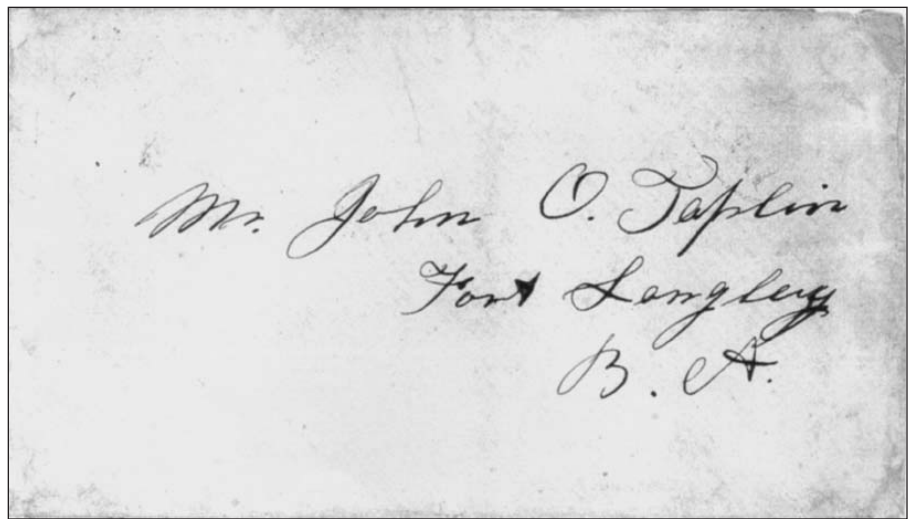 Mr. John O. Taplin
Fort Langley
B. A.